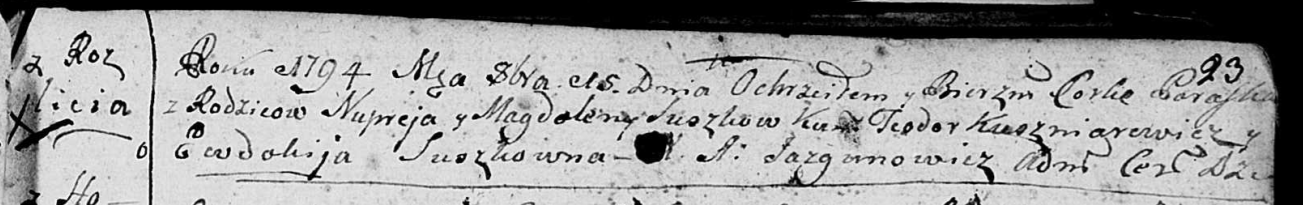 23
z Roz
licia
Roku 1794 Msa 8bra 15. Dnia Ochrzciłem y Bierzm Corke Paraska
z Rodzicow Nupreja y Magdaleny Suszkow Kum Teodor Kuszniarewicz y
Ewdokija Suszkowna - A: Jazgunowicz Adm Cer
z Ho-